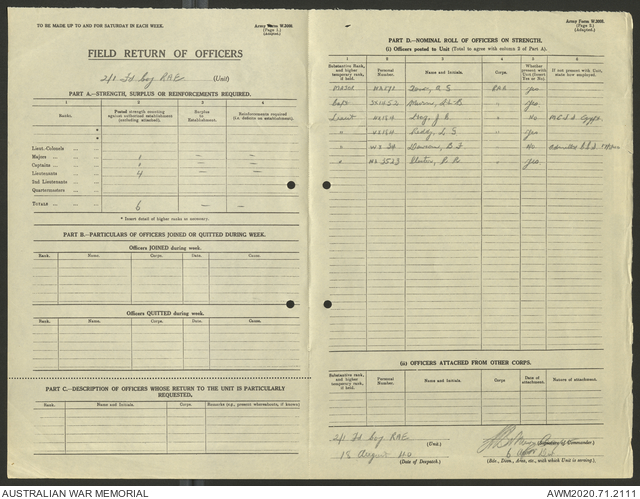 TO BE MADE UP TO AND FOR SATURDAY IN EACH WEEK.
Army Form W.3008.
(Page 1.)
(Adapted.)
FIELD RETURN OF OFFICERS
2/1 Fd Svy RAE (Unit)
PART A.—STRENGTH, SURPLUS OR REINFORCEMENTS REQUIRED.
1 2 3 4
Ranks. Posted strength counting against authorised establishment (excluding attached). Surplus to Establishment. Reinforcements required (i.e. deficits on establishment).
*
*
Lieut.-Colonels
Majors 1 — —
Captains 1 — —
Lieutenants 4 — —
2nd Lieutenants
Quartermasters
TOTALS 6 — —
* Insert detail of higher ranks as necessary.
PART B.—PARTICULARS OF OFFICERS JOINED OR QUITTED DURING WEEK.
Officers JOINED during week.
Rank. Name. Corps. Date. Cause.
Officers QUITTED during week.
Rank. Name. Corps. Date. Cause.
PART C.—DESCRIPTION OF OFFICERS WHOSE RETURN TO THE UNIT IS PARTICULARLY REQUESTED.
Rank. Name and Initials. Corps. Remarks (e.g., present whereabouts, if known)
Army Form W.3008.
(Page 2.)
(Adapted.)
PART D.—NOMINAL ROLL OF OFFICERS ON STRENGTH.
(i) Officers posted to Unit (Total to agree with column 2 of Part A).
1 2 3 4 5 6
Substantive Rank, and higher temporary rank, if held. Personal Number. Name and Initials. Corps. Whether present with Unit (Insert Yes or No). If not present with Unit state how employed.
Major RAE Yes
Capt " Yes
Lieut " No
" " Yes
" " No
" NX 3523 " Yes
(ii) OFFICERS ATTACHED FROM OTHER CORPS.
Substantive rank, and higher temporary rank, if held. Personal Number. Name and Initials. Corps Date of attachment. Nature of attachment.
2/1 Fd Svy RAE
(Unit.)
18 August 40
(Date of Despatch.)
(Signature of Commander)
6
(Bde., Divn., Area, etc., with which Unit is serving).
AUSTRALIAN WAR MEMORIAL
AWM2020.71.2111